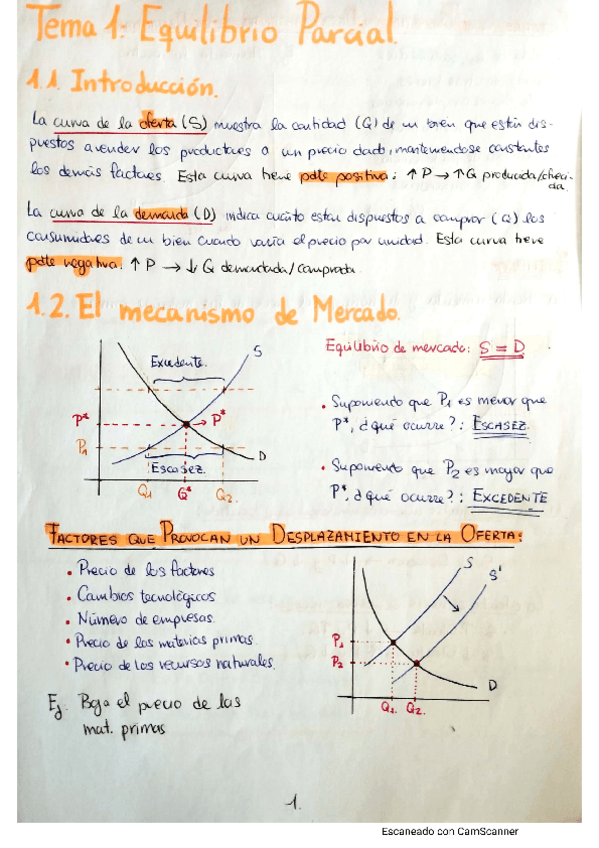 Tema 1: Equilibrio Parcial.
1.1. Introducción.
La curva de la oferta (S) muestra la cantidad (Q) de un bien que están dis-
puestos a vender los productores a un precio dado, manteniéndose constantes
los demás factores. Esta curva tiene pdte positiva: ↑ P → ↑ Q producida/ofreci-
da.
La curva de la demanda (D) indica cuánto están dispuestos a comprar (Q) los
consumidores de un bien cuando varía el precio por unidad. Esta curva tiene
pdte negativa: ↑ P → ↓ Q demandada/comprada.
1.2. El mecanismo de Mercado.
Equilibrio de mercado: S = D
Excedente.
S
P*
P*
P1
Escasez.
D
Q1
Q*
Q2.
• Suponiendo que P1 es menor que
P*, ¿qué ocurre?: ESCASEZ.
• Suponiendo que P2 es mayor que
P*, ¿qué ocurre?: EXCEDENTE
FACTORES QUE PROVOCAN UN DESPLAZAMIENTO EN LA OFERTA:
• Precio de los factores
• Cambios tecnológicos
• Número de empresas.
• Precio de las materias primas.
• Precio de los recursos naturales.
Ej. Baja el precio de las
mat. primas
S
S'
P1
P2
D
Q1.
Q2.
1.
Escaneado con CamScanner